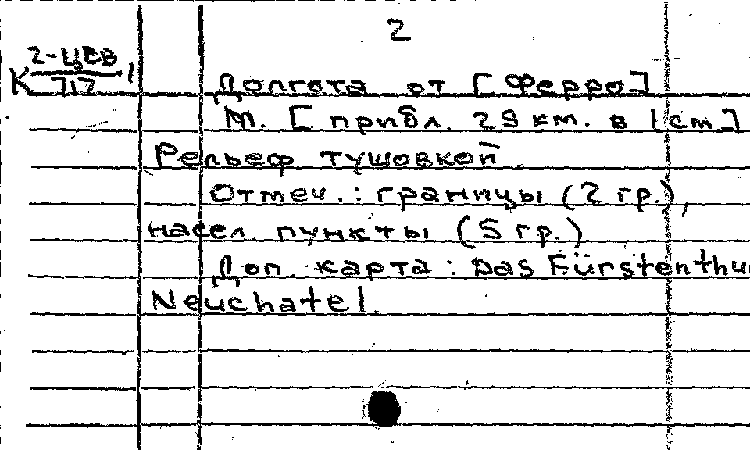 2
К 2-ЦЕВ/717
Долгота от [Ферро]
М. [прибл. 29 км. в 1 см]
Рельеф тушовкой
Отмеч.: границы (2 гр.),
насел. пункты (5 гр.)
Доп. карта: Das Fürstenthu
Neuchatel.